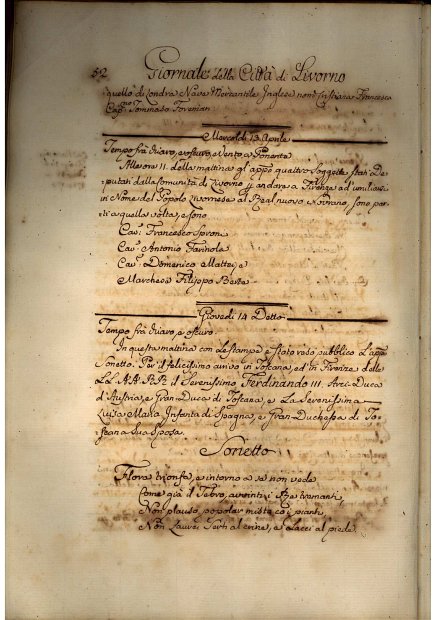 52 Giornale della Città di Livorno
quello di Londra Nave Mercantile Inglese nom. Cristiana Francesca
Cap. Tommaso Foreman
Mercoldì 13 Aprile
Tempo frà chiaro, e oscuro, e Vento a Ponente
All'ora 11. della mattina gl'app. quattro Soggetti stati De-
putati dalla Comunità di Livorno p. andare a Firenze ad umiliare
in Nome del Popolo Livornese al Real nuovo Sovrano, sono par-
titi a quella volta, e sono
Cav. Francesco Sproni
Cav. Antonio Farinola
Cav. Domenico Mattei, e
Marchese Filippo Berte
Giovedì 14 Detto
Tempo frà chiaro, e oscuro.
In questa mattina con le stampe è stato reso pubblico l'app.
Sonetto. Per il felicissimo arrivo in Toscana, ed in Firenze delle
LL. AA. RR. il Serenissimo Ferdinando III. Arci-Duca
d'Austria, e Gran-Duca di Toscana, e La Serenissima
Luisa Maria Infanta di Spagna, e Gran-Duchessa di To-
scana Sua Sposa.
Sonetto
Flora trionfa, e intorno a se non vede
Come già il Tebro, avvinti i Rè tremanti,
Non plauso popolar misto coi pianti,
Non Lauree Serti al crine, e Lacci al piede.